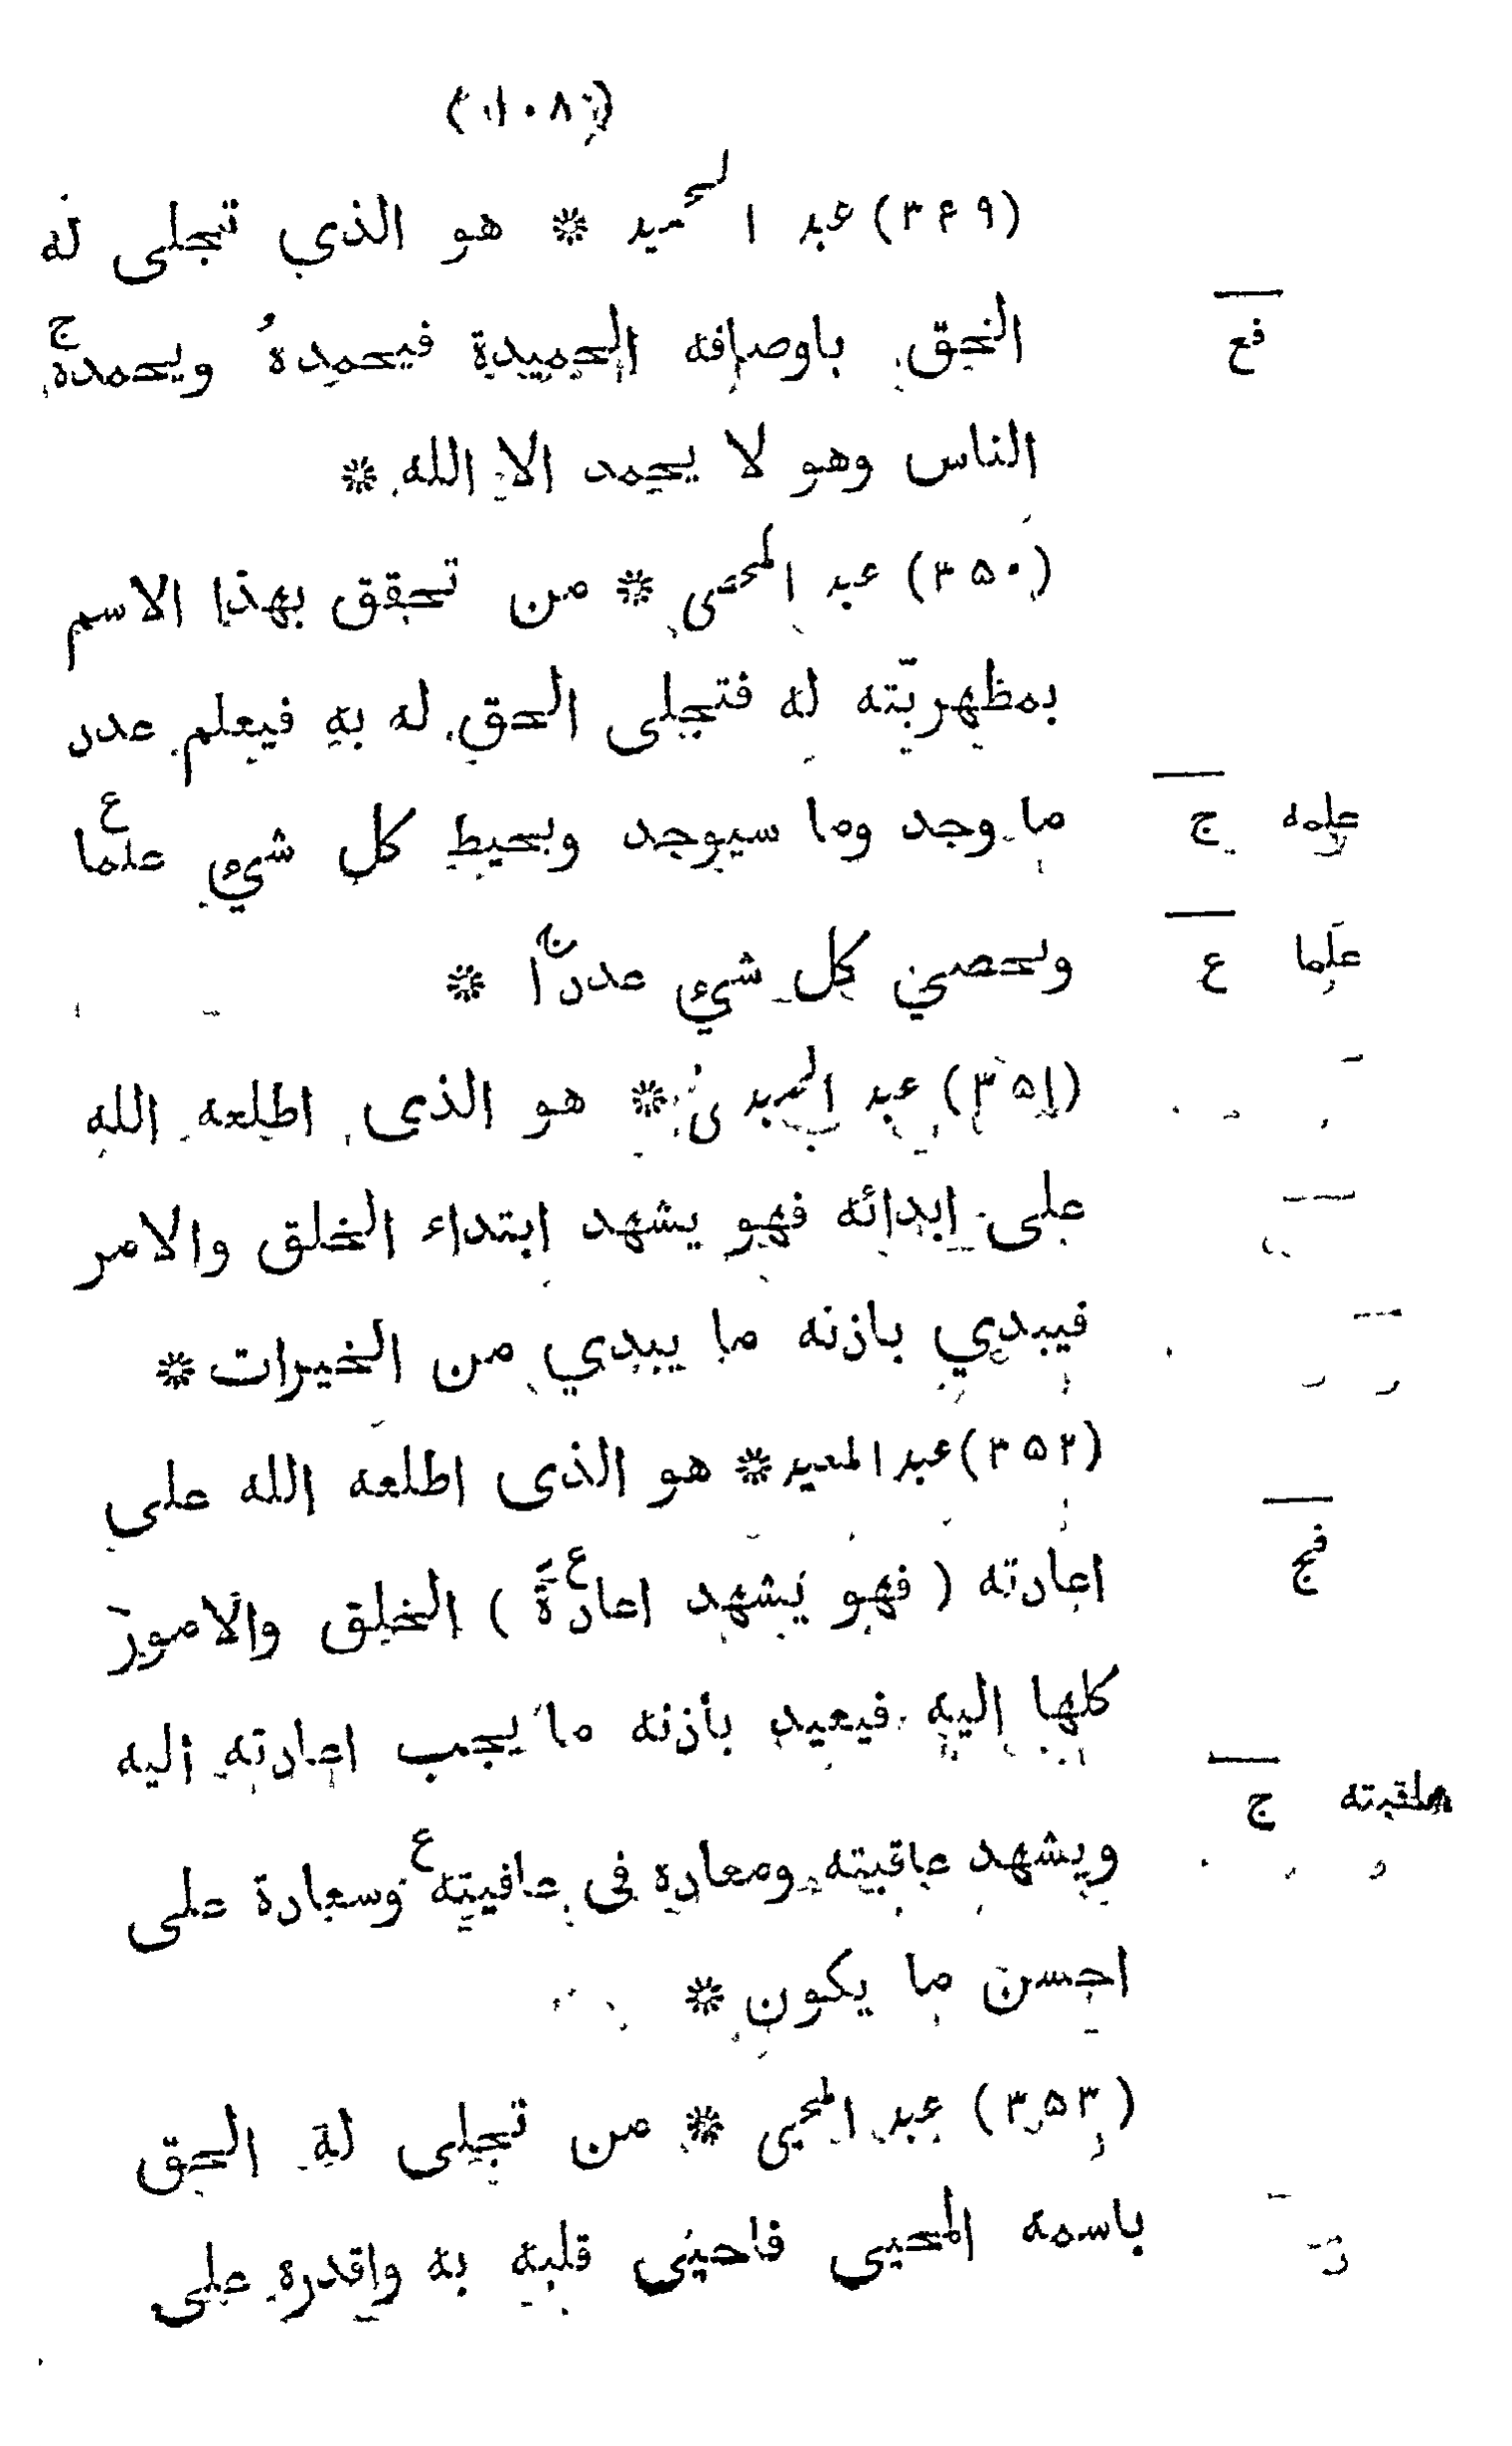 (١٠٨)
(٣۴٩) عبد الحميد * هو الذي تجلى له
الحق باوصافه الحميدة فيحمده ويحمده ج
فع
الناس وهو لا يحمد الا الله *
(٣٥٠) عبد المحصى * من تحقق بهذا الاسم
بمظهريّته له فتجلى الحق له به فيعلم عدد
ما وجد وما سيوجد وبحيط كل شيء علما ع
ج علمه
وبحصي كل شيء عددا *
ع علما
(٣٥١) عبد المبدئ * هو الذى اطلعه الله
على ابدائه فهو يشهد ابتداء الخلق والامر
فيبدي باذنه ما يبدي من الخيرات *
(٣٥٢) عبد المعيد * هو الذى اطلعه الله على
اعادته ( فهو يشهد اعادة ع ) الخلق والامور
فج
كلها اليه فيعيد باذنه ما يجب اعادته اليه
ويشهد عاقبته ومعاده فى عافيته ع وسعادة على
ج
احسن ما يكون *
(٣٥٣) عبد المحيى * من تجلى له الحق
باسمه المحيى فاحيٰى قلبه به واقدره على